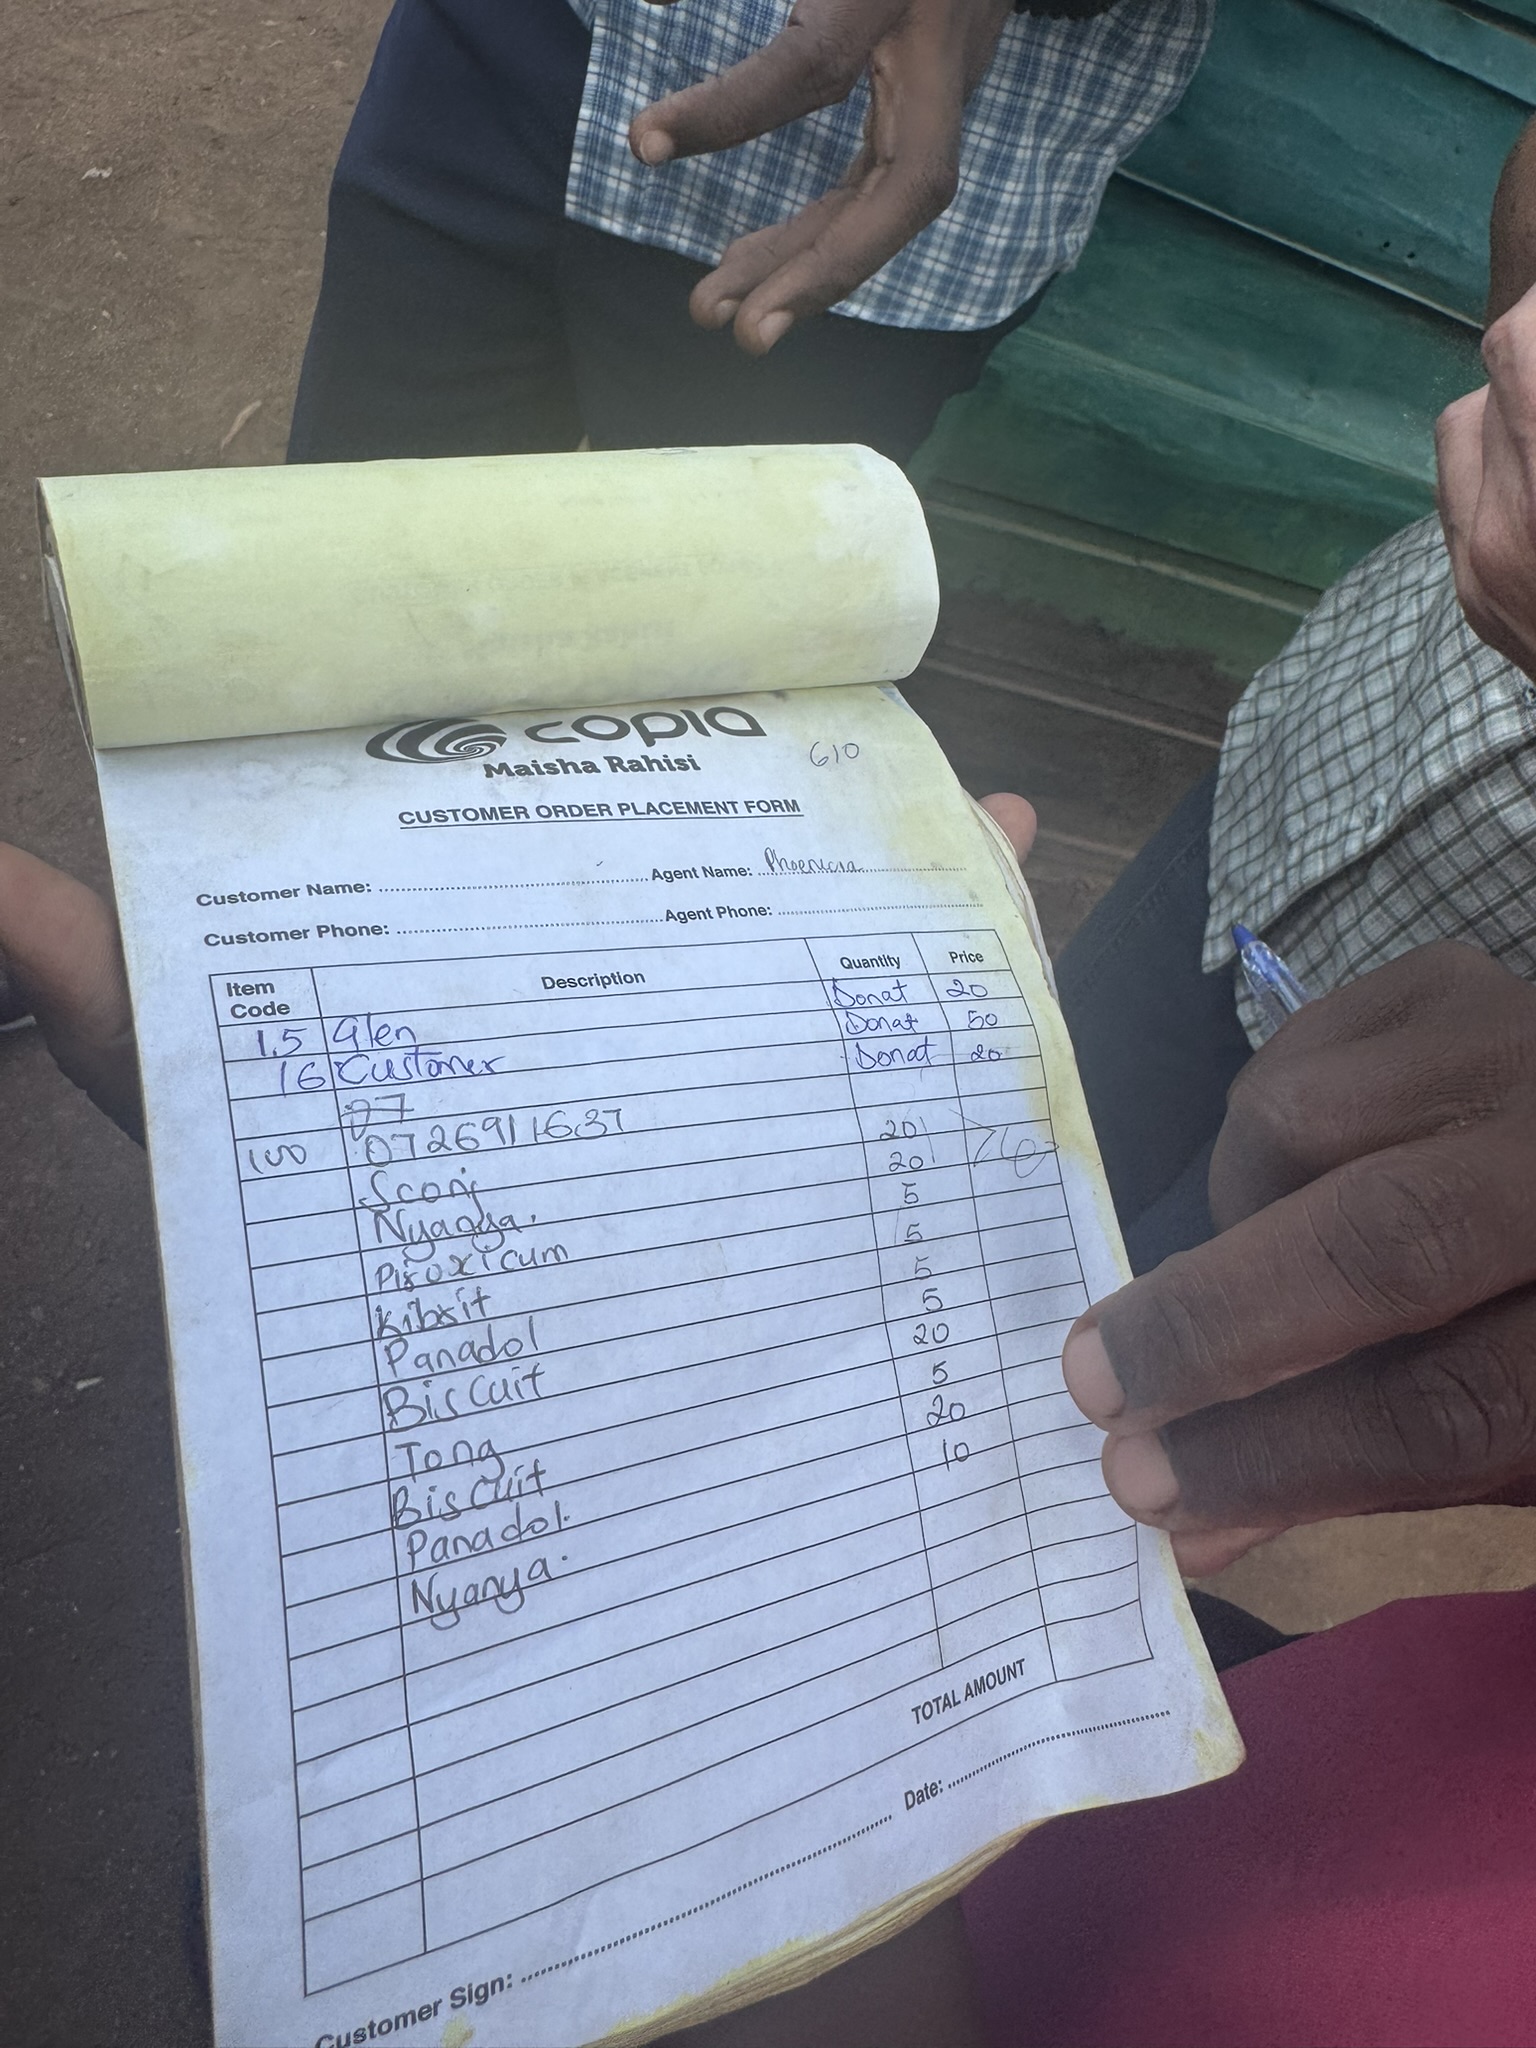 copia
Maisha Rahisi
610
CUSTOMER ORDER PLACEMENT FORM
Customer Name: Agent Name: Phoenicia
Customer Phone: Agent Phone:
Item Code Description Quantity Price
15 Glen Donat 20
16 Customer Donat 50
Donat 20
07
100 0726911637
Sconj 20
Nyanya. 20
Piroxicum 5
Kibrit 5
Panadol 5
Biscuit 5
Tong 20
Biscuit 5
Panadol. 20
Nyanya. 10
TOTAL AMOUNT
Customer Sign: Date: